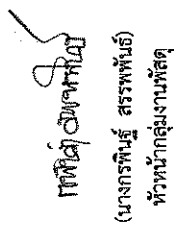 (นางกรพินธุ์ สรรพพันธ์)
หัวหน้ากลุ่มงานพัสดุ